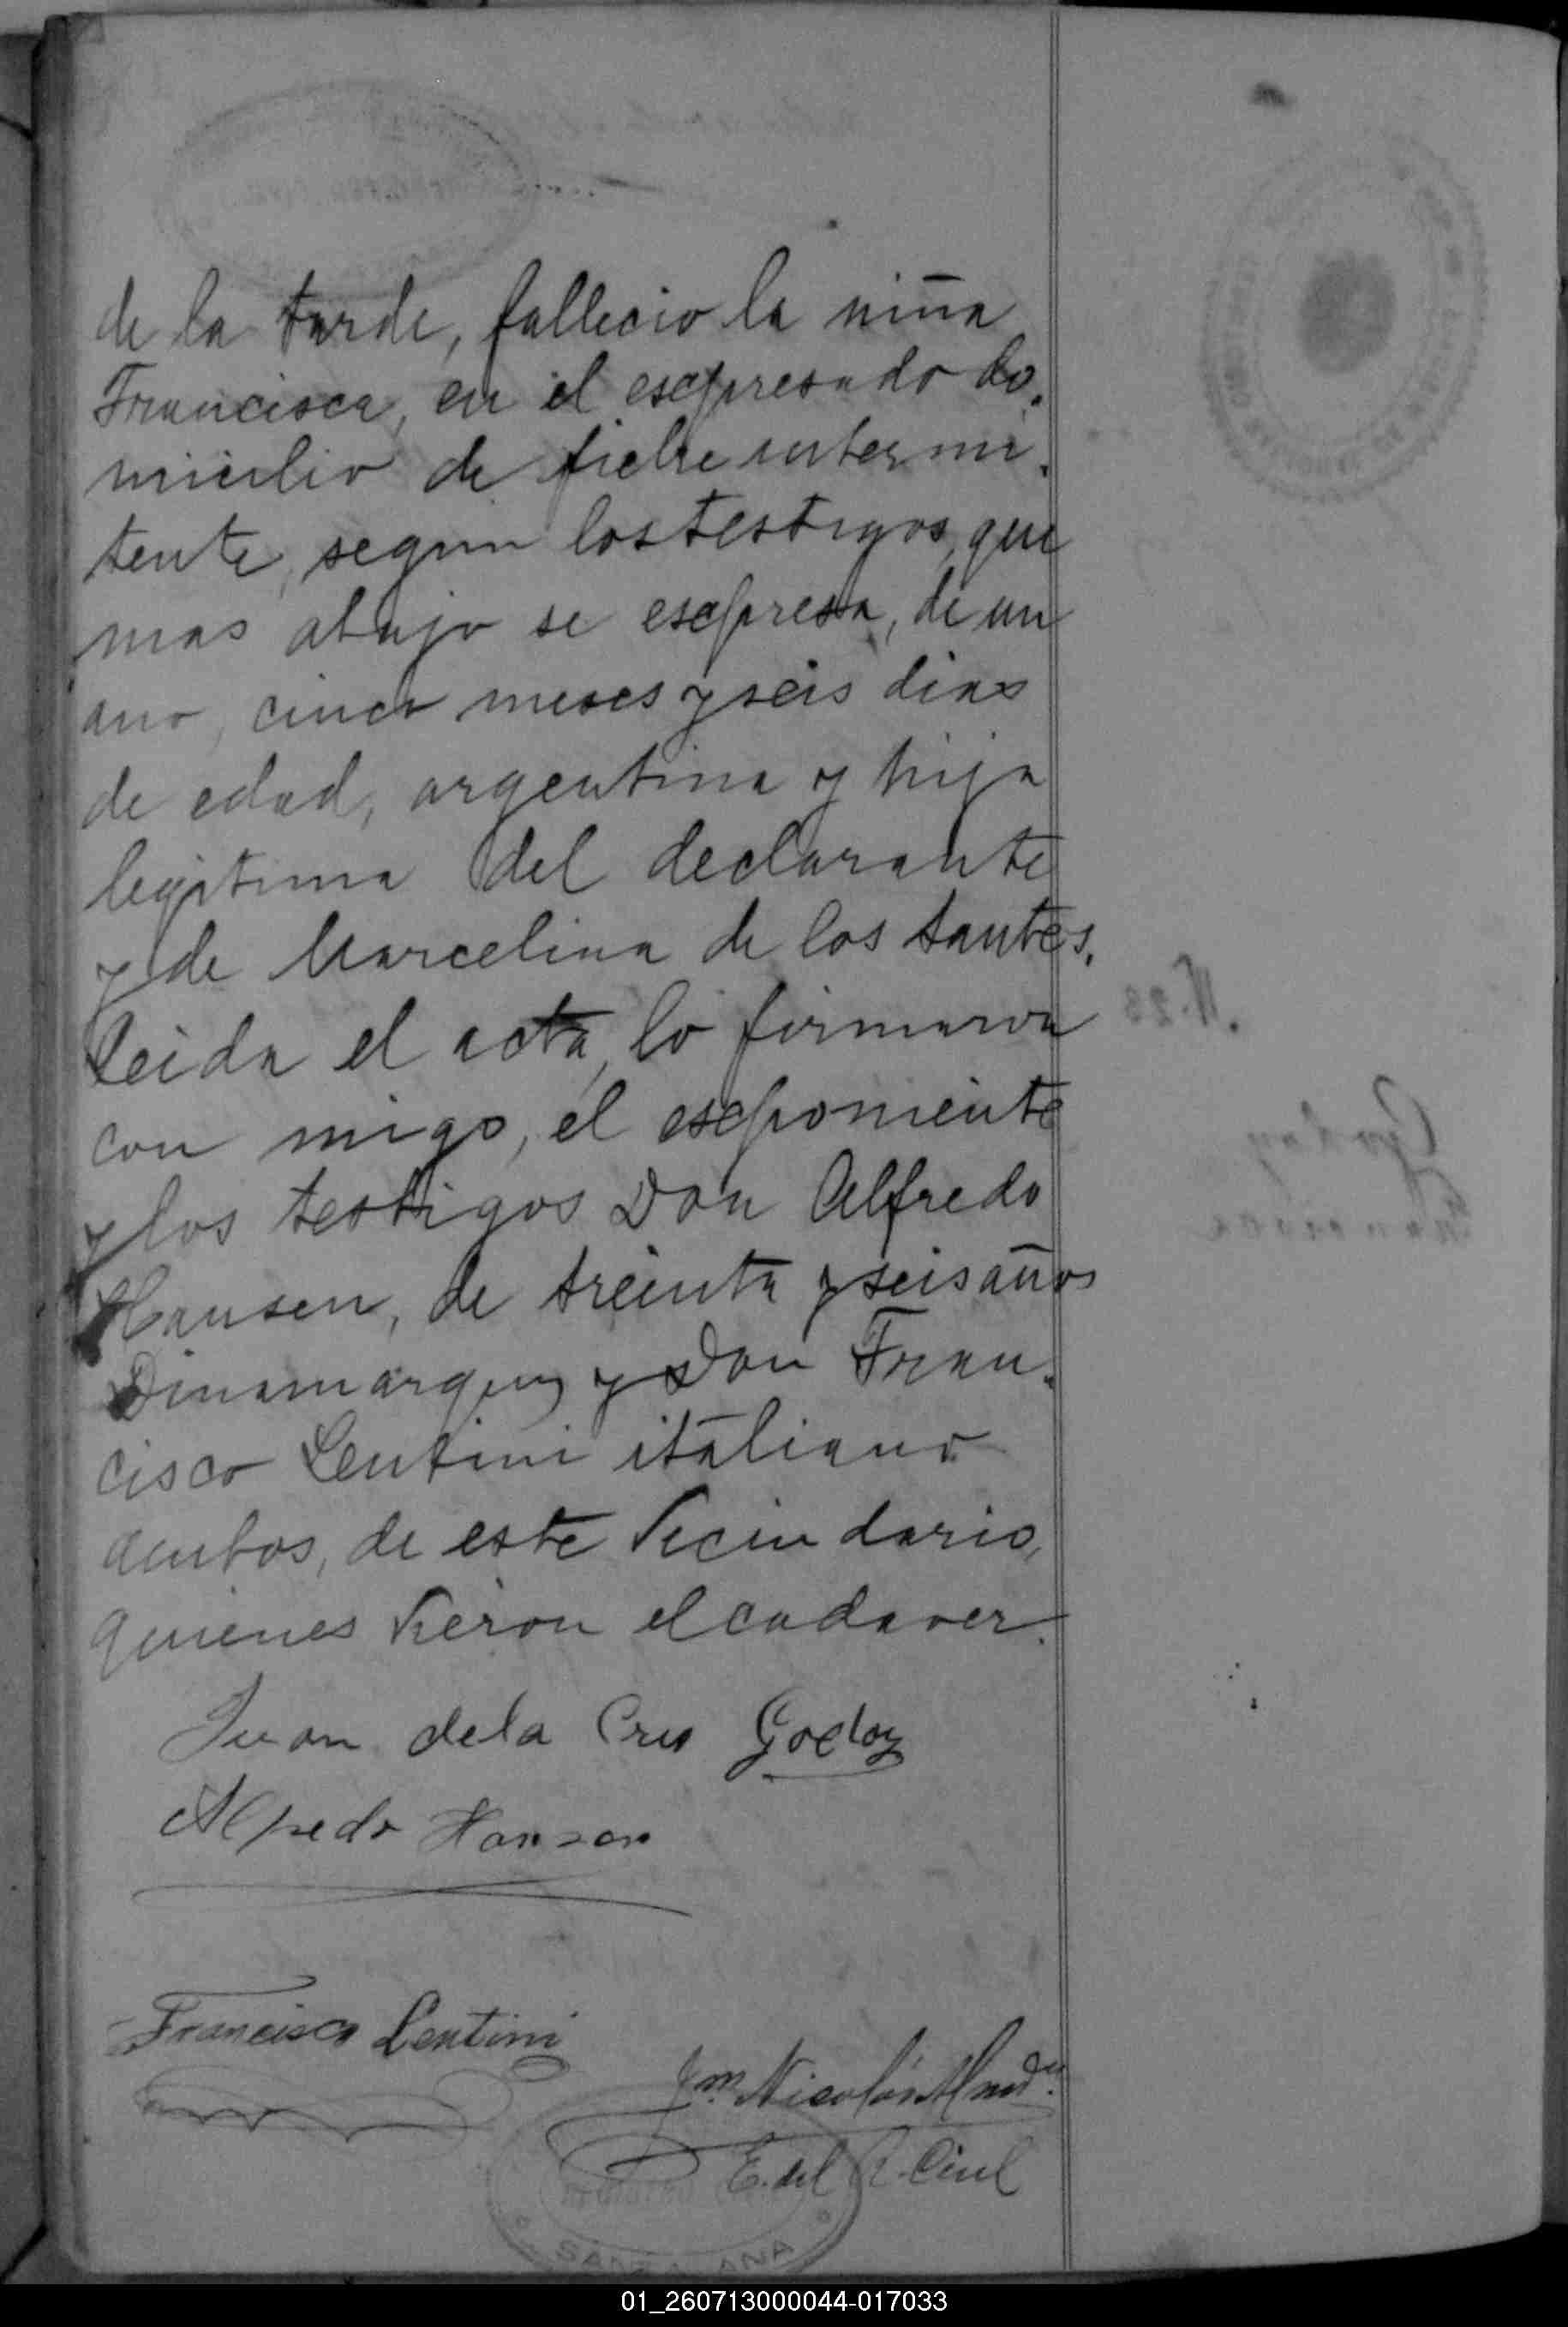 de la tarde, fallecio la niña
Francisca, en el esepresado do.
micilio de fiebre intermi.
tente, segun los testigos, que
mas abajo se esepresa, de un
ano, cinco meses y seis dias
de edad, argentina y hija
legitima del declarante
y de Marcelina de los Santos.
Leida el acta, lo firmaron
con migo, el eseponiente
y los testigos Don Alfredo
Hansen, de treinta y seis años
Dinamarques y Don Fran.
cisco Lentini italiano
ambos, de este Vecindario,
quienes Vieron el cadaver.
Juan dela Crus Godoy
Alfredo Hanzen
Francisco Lentini
Nicolás
E. del R. Civil
SANTA ANA
Nº 23
Godoy
Francisca
01_260713000044-017033